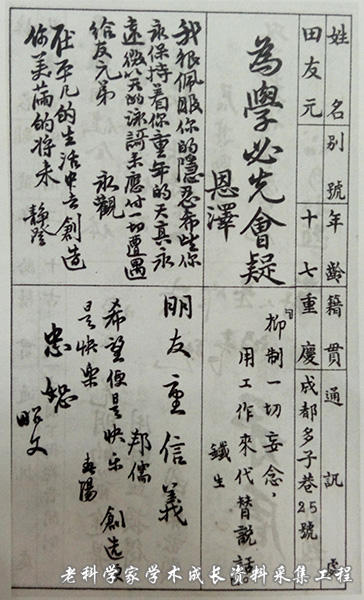 姓名 別號 年齡 籍貫 通訊處
田友元 十七 重慶 成都多子巷25號
為學必先會疑
恩澤
我很佩服你的隱忍希望你
永保持着你童年的天真永
遠微笑的詠謌來應付一切遭遇
給友元弟
永觀
在平凡的生活中去創造
你美滿的將來
靜澄
抑制一切妄念，
用工作來代替說話
鐵生
朋友重信義
邦儒
希望便是快樂 創造更
是快樂
春陽
忠恕
昭文
老科学家学术成长资料采集工程